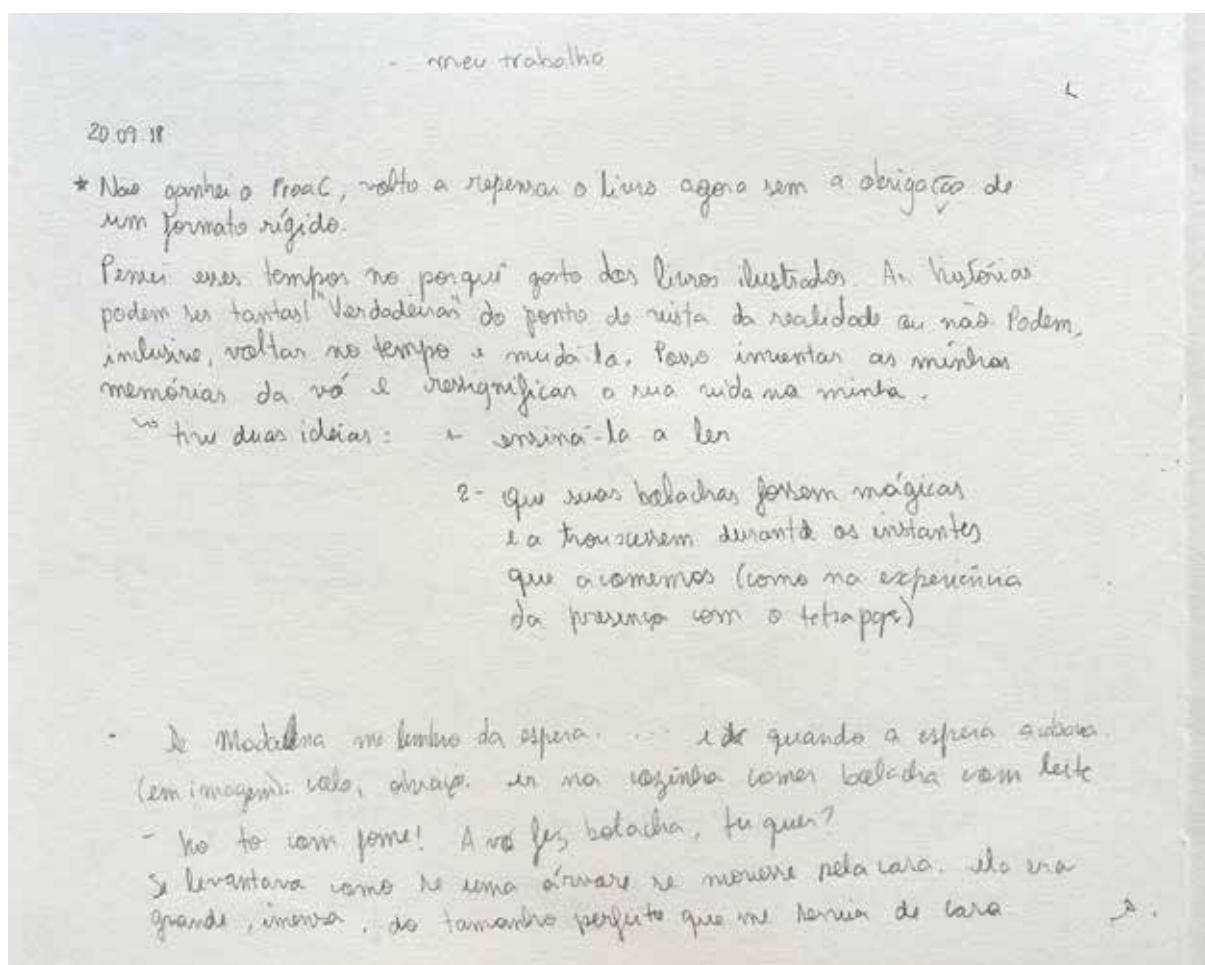 - meu trabalho
20.09.18
* Não ganhei o ProaC, volto a repensar o livro agora sem a obrigação de
um formato rígido.
Pensei esses tempos no porquê gosto dos livros ilustrados. As histórias
podem ser tantas! "Verdadeiras" do ponto de vista da realidade ou não. Podem,
inclusive, voltar no tempo e mudá-la. Posso inventar as minhas
memórias da vó e ressignificar a sua vida na minha.
tive duas ideias: 1- ensiná-la a ler
2- que suas bolachas fossem mágicas
e a trouxessem durante os instantes
que a comemos (como na experiência
da presença com o)
- De Madalena me lembro da espera. ... e de quando a espera acabava.
(em imagem): colo, abraço. ir na cozinha comer bolacha com leite
- to com fome! A vó fez bolacha, tu quer?
Se levantava como se uma árvore se movesse pela casa. ela era
grande, imensa, do tamanho perfeito que me servia de casa